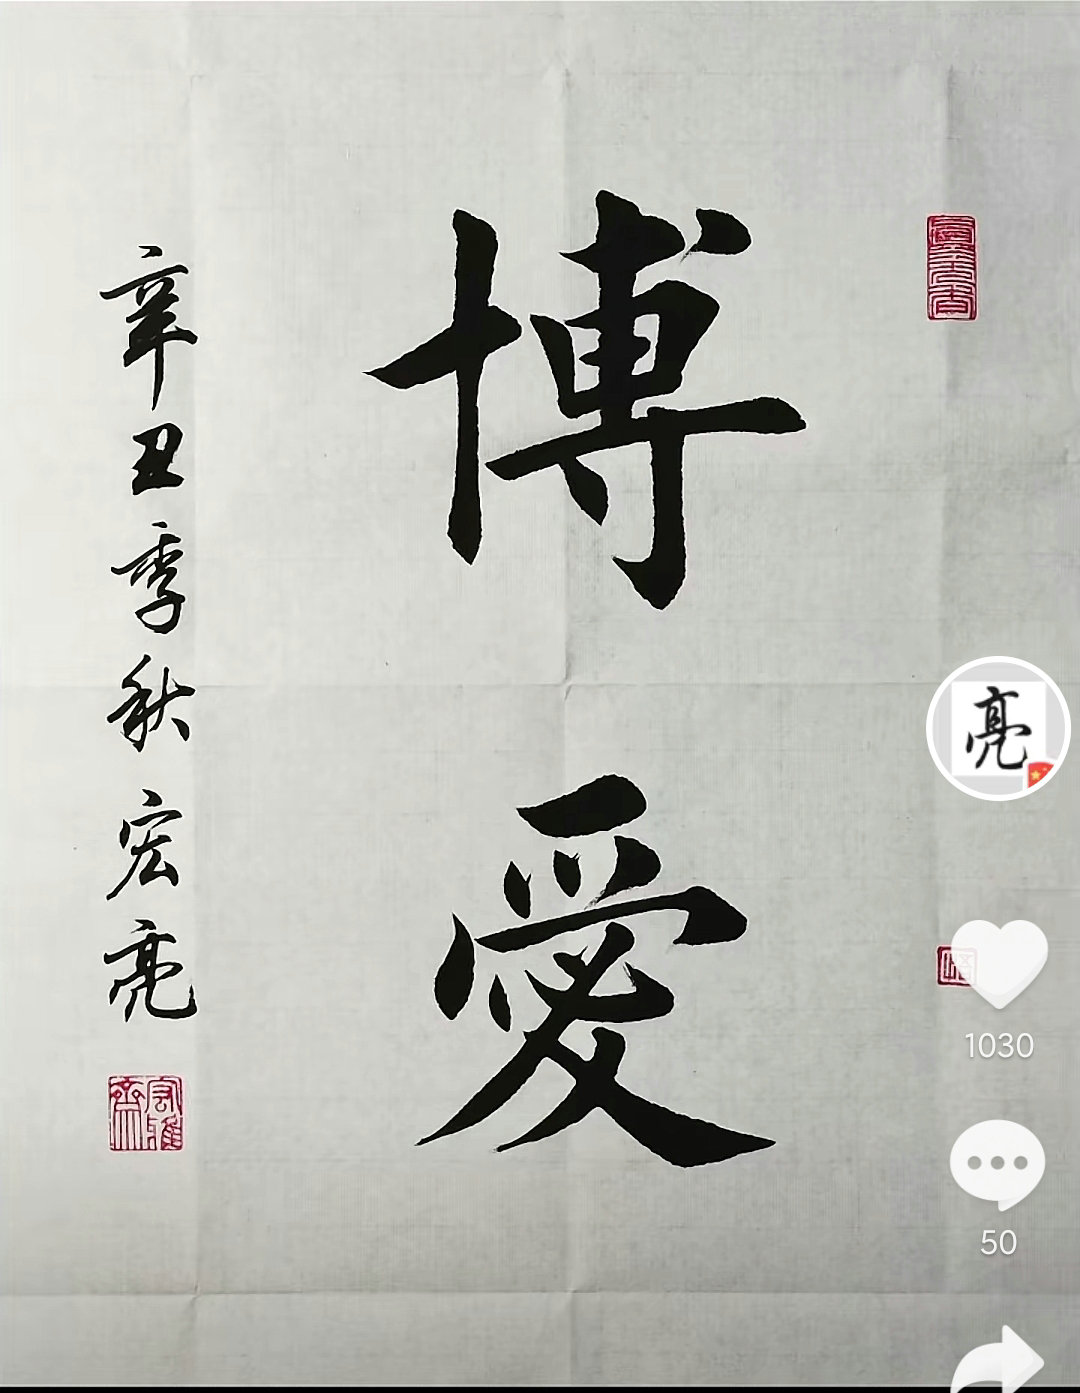 博愛
辛丑季秋 宏亮
亮
1030
50